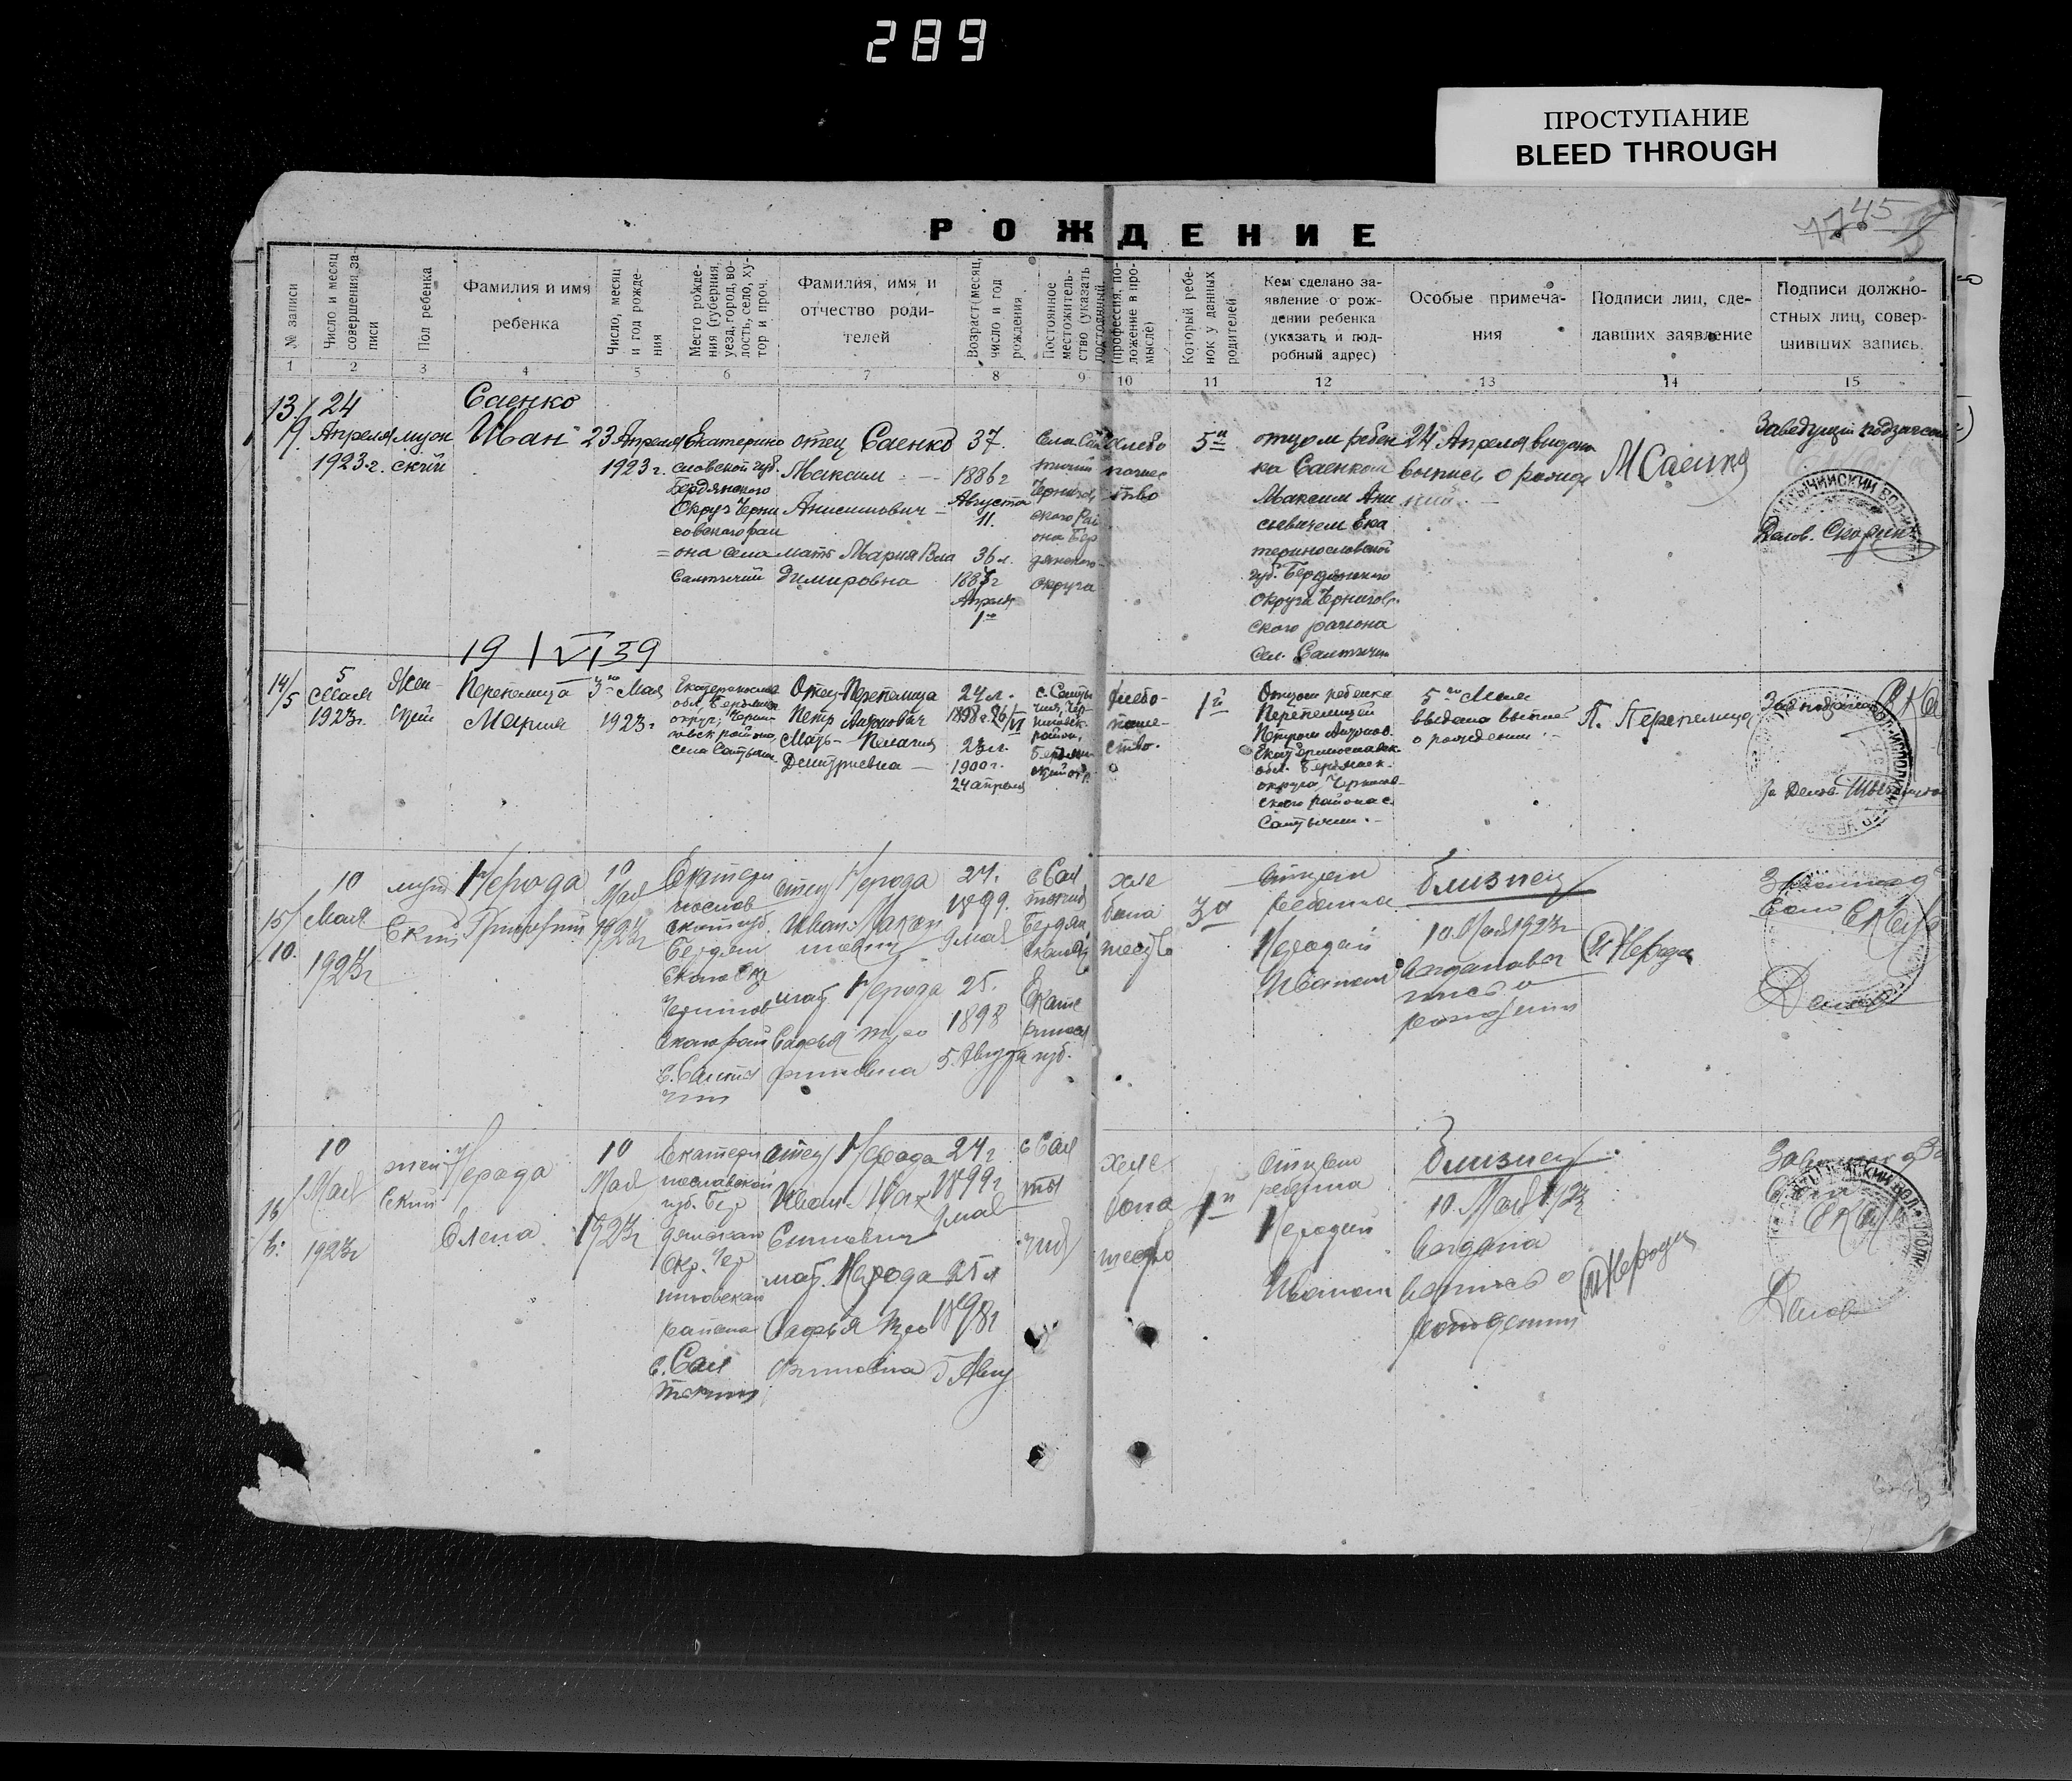 289
ПРОСТУПАНИЕ
BLEED THROUGH
45
РОЖДЕНИЕ
№ записи
Число и месяц совершения записи
Пол ребенка
Фамилия и имя
ребенка
Число, месяц и год рождения
Место рождения (губерния, уезд, город, волость, село, хутор и проч.
Фамилия, имя и
отчество роди-
телей
Возраст (месяц, число и год рождения
Постоянное местожительство (указать
(профессия, положение в промысле)
Который ребенок у данных родителей
Кем сделано за-
явление о рож-
дении ребенка
(указать и под-
робный адрес)
Особые примеча-
ния
Подписи лиц, сде-
лавших заявление
Подписи должно-
стных лиц, совер-
шивших запись.
1 2 3 4 5 6 7 8 9 10 11 12 13 14 15
13/9
24
Апреля
1923 г.
мужс
ский
Саенко
Иван
23 Апреля
1923 г.
Екатерино
словской губ.
Бердянского
Округ Черни
говского рай
= она села
Салтычий
отец Саенко
Максим
Анисимович
мать Мария Вла
димировна
37
1886 г
Августа
11.
36 л.
1887 г
Апреля
1го
Села Сал
тычий
Чернигов
ского Рай
она Бер
дянского
округа
хлебо
паше
ство
5й
отцом ребен
ка Саенком
Максим Ани
сиевичем Ека
теринословской
губ. Бердянского
Округа Чернигов
ского района
сел. Салтычии
24 Апреля выдана
выпись о рожде
нии.
М Саенко
Заведущий подзагсом
Делов.
19 1/VI 39
14/5
5
Мая
1923 г.
Жен-
ский
Перепелица
Мария
3го Мая
1923 г
Екатеринослав
обл, Бердянск
округ, Черни-
говск района
села Салтычи
Отец-Перепелица
Петр
Мать - Пелагия
Дмитриевна -
24 л.
1898 г 26/VI
23 л.
1900 г.
24 апреля
с. Салты
чия, Чер-
ниговск.
район,
Бердян-
ский окр.
хлебо-
паше-
ство.
1й
Отцом ребенка
Перепелицей
Петром
Екатеринославск.
обл. Бердянск.
округа, Чернигов-
ского района с.
Салтычии. -
5го Мая
выдана выпись
о рождении. -
П. Перепелица
За Делов
15/10.
10
Мая
1923 г
муж
ский
Нерода
Григорий
10
Мая
1923 г
Екатери
нослав
ской губ.
Бердян
ского Окр
Чернигов
ского рай
с. Салты
чии
отец Нерода
Иван Макси
мович
мат. Нерода
Софья Тро
фимовна
24.
1899.
9 мая
25.
1898
5. Августа
с Сал
тычий
Бердян
ской Окр
Екате
ринослав
губ.
хле
бопа
шеств
3й
Отцом
ребенка
Неродой
Иваном
близнец
10 Мая 1923 г
выдана вы
пись о
рождении
И Нерода
Делов
16/6.
10
Мая
1923 г
жен
ский
Нерода
Елена
10
Мая
1923 г
Екатери
нославской
губ. Бер
дянскаго
Окр. Чер
ниговскаго
района
с. Сал
тычии
отец Нерода
Иван Мак
симович
мат. Нерода
Софья Тро
фимовна
24 г
1899 г
9 мая
25 л
1898 г
5 Авгу
с Сал
ты
чий
хле
бопа
шество
1й
Отцом
ребенка
Неродой
Иваном
Близнец
10 Мая 1923
выдана
выпись о
рождении
И Нерода
Делов